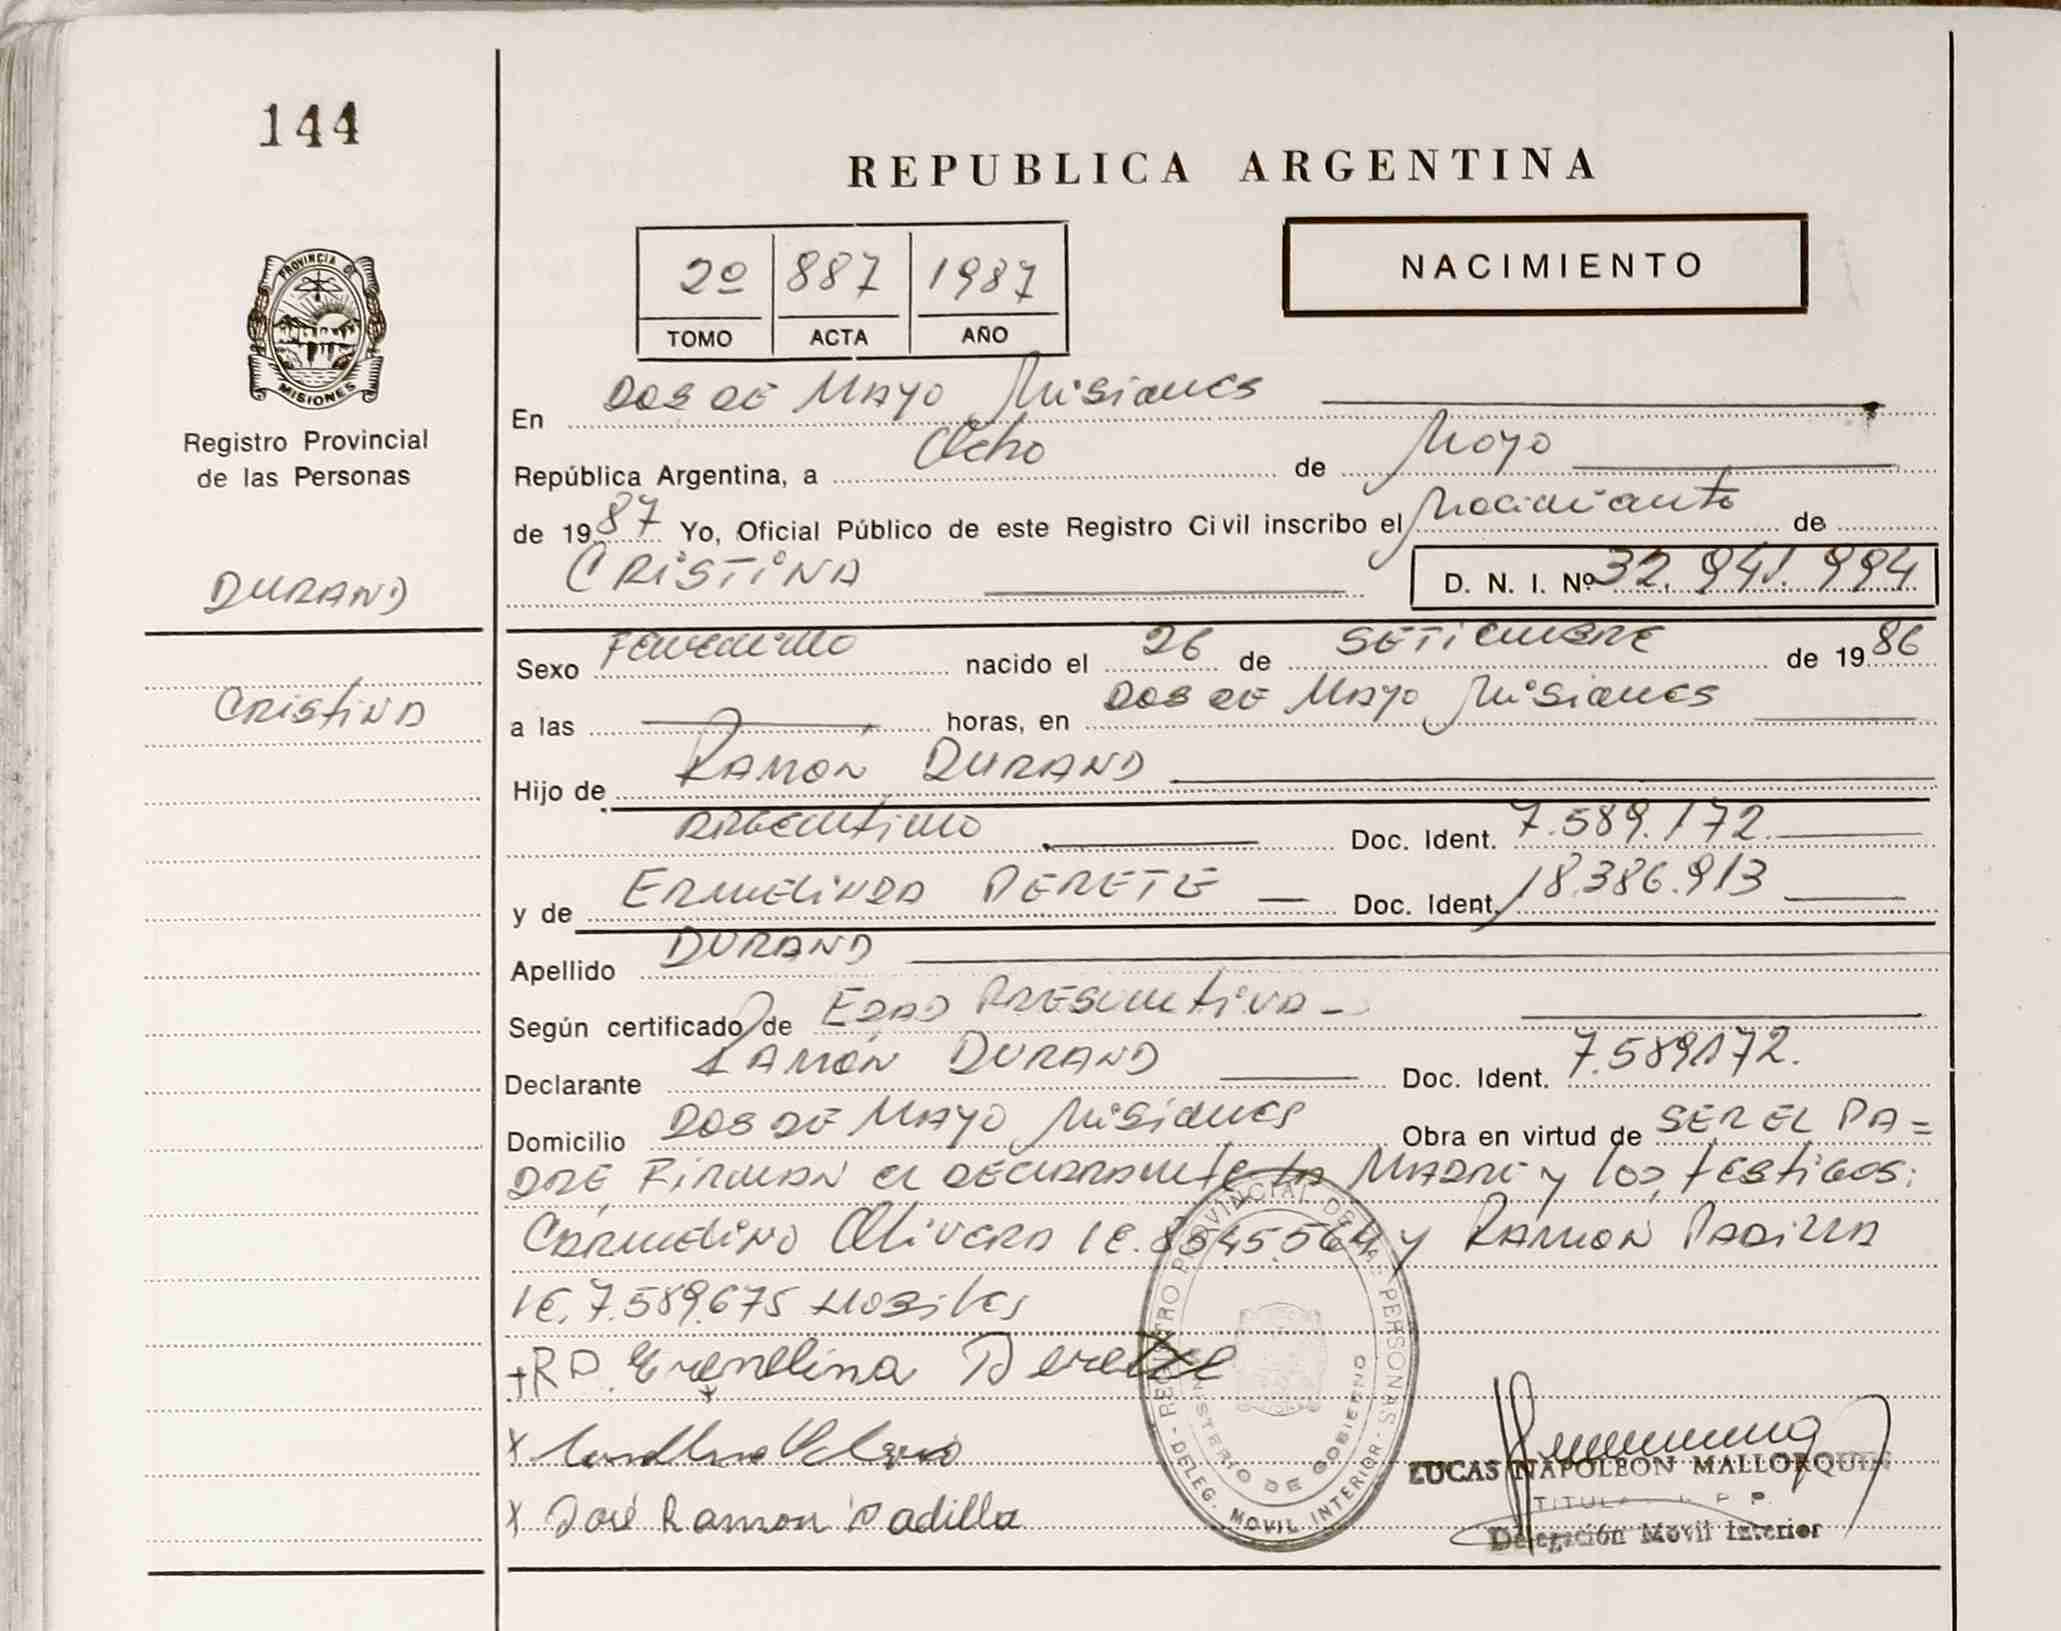 144
REPUBLICA ARGENTINA
2º 887 1987
TOMO ACTA AÑO
NACIMIENTO
PROVINCIA DE
MISIONES
Registro Provincial
de las Personas
DURAND
CRistiNA
En DOS DE MAYO Misiones
República Argentina, a Ocho de Mayo
de 1987 Yo, Oficial Público de este Registro Civil inscribo el Nacimiento de
CRISTINA D. N. I. Nº 32.941.994
Sexo Femenino nacido el 26 de SETiEMBRE de 1986
a las horas, en DOS DE MAYO Misiones
Hijo de RAMÓN DURAND
ARGENtiNO Doc. Ident. 7.589.172.
y de ERMELiNDA DERETE Doc. Ident. 18.386.913
Apellido DURAND
Según certificado de EDAD PRESUNtiVA
Declarante RAMÓN DURAND Doc. Ident. 7.589172.
Domicilio DOS DE MAYO Misiones Obra en virtud de SER EL PA=
DRE, FIRMAN el DECLARANte LA MADRE y los testigos:
CARMELINO OLIVERA IE.8545.564 y RAMON PADILLA
IE.7.589.675 HABiles
+RD. Ermelina Derete
x
x José Ramon Padilla
REGISTRO PROVINCIAL DE LAS PERSONAS - DELEG. MOVIL INTERIOR -
MINISTERIO DE GOBIERNO
LUCAS NAPOLEON MALLORQUIN
TITULAR R. P. P.
Delegación Movil Interior